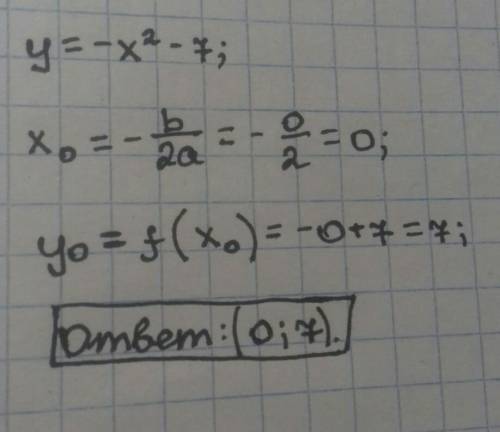 y = -x² - 7;
x₀ = - b/2a = - 0/2 = 0;
y₀ = f(x₀) = -0+7 = 7;
Ответ: (0; 7).